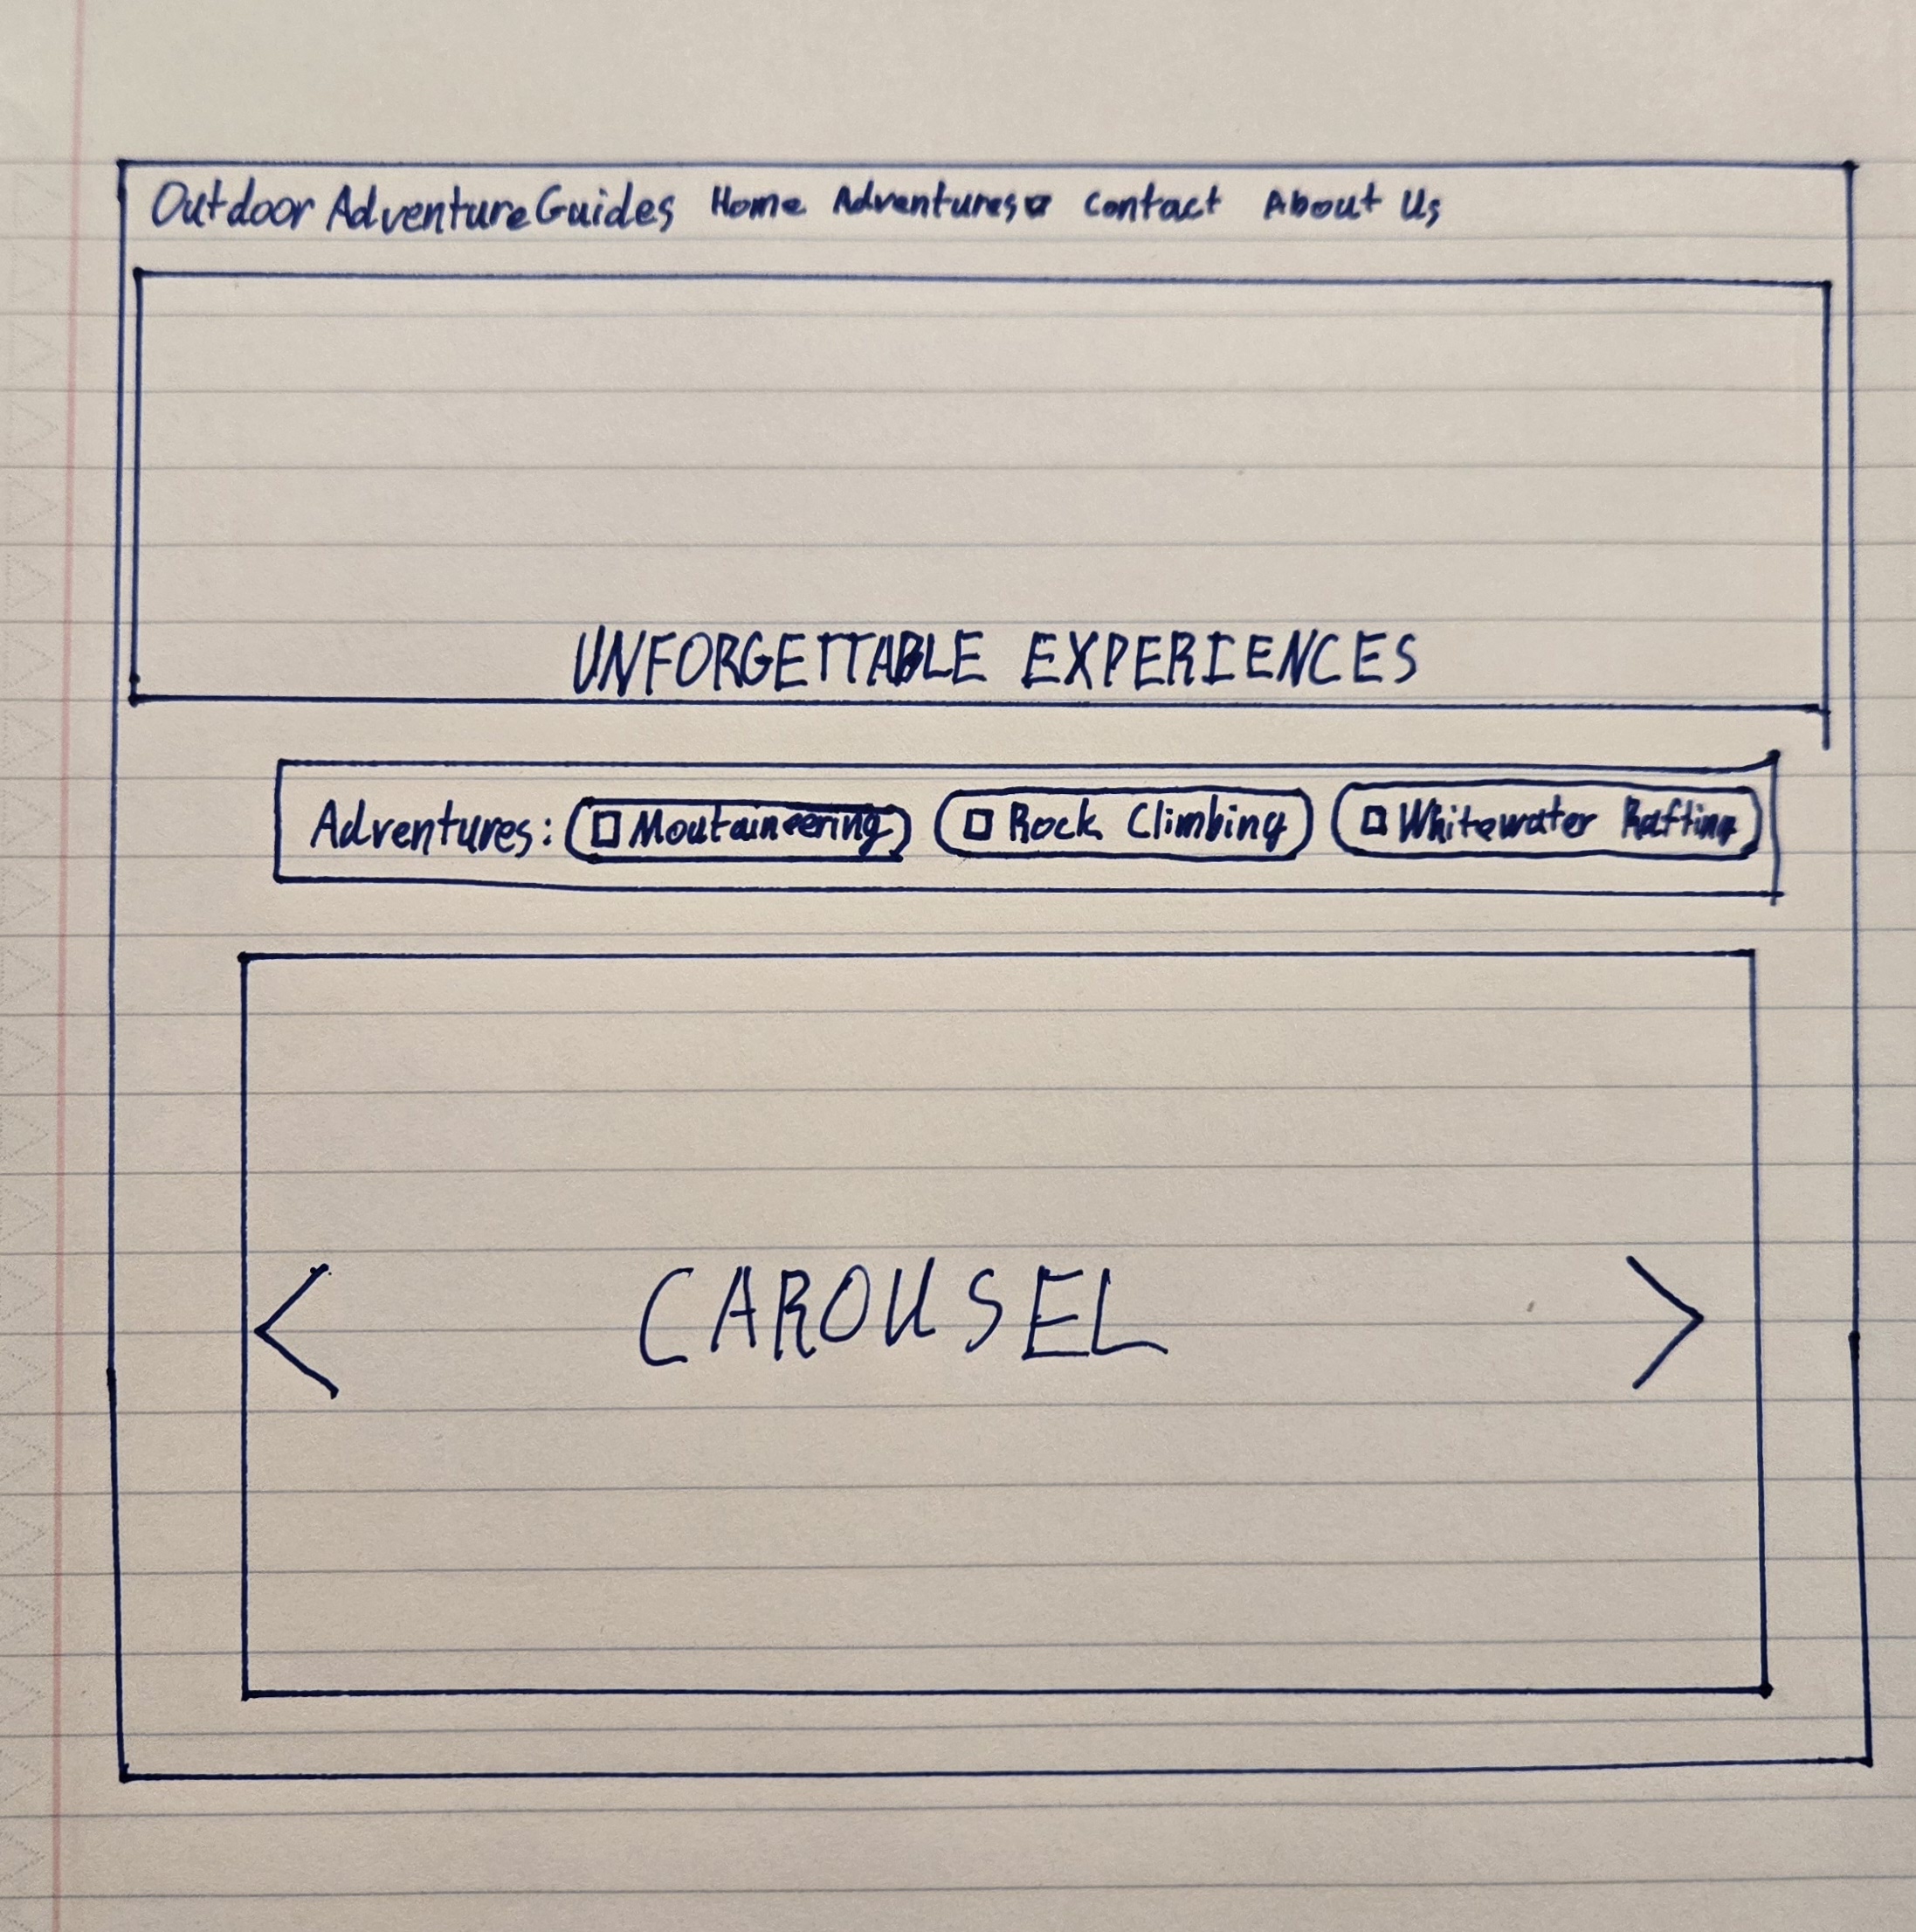 Outdoor Adventure Guides Home Adventures Contact About Us
UNFORGETTABLE EXPERIENCES
Adventures: Moutaineering Rock Climbing Whitewater Rafting
< CAROUSEL >